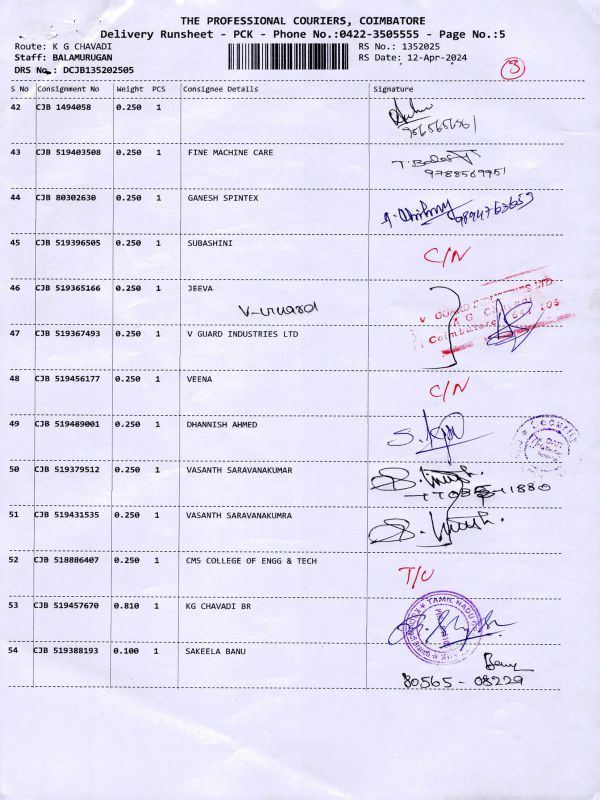 THE PROFESSIONAL COURIERS, COIMBATORE
Delivery Runsheet - PCK - Phone No.:0422-3505555 - Page No.:5
Route: K G CHAVADI RS No.: 1352025
Staff: BALAMURUGAN RS Date: 12-Apr-2024
DRS No.: DCJB135202505
3
S No Consignment No Weight PCS Consignee Details Signature
42 CJB 1494058 0.250 1
43 CJB 519403508 0.250 1 FINE MACHINE CARE
9788569951
44 CJB 80302630 0.250 1 GANESH SPINTEX
9894763653
45 CJB 519396505 0.250 1 SUBASHINI C/N
46 CJB 519365166 0.250 1 JEEVA
V-Guard
47 CJB 519367493 0.250 1 V GUARD INDUSTRIES LTD
V GUARD INDUSTRIES LTD
K G Chavadi
Coimbatore 641 105.
48 CJB 519456177 0.250 1 VEENA C/N
49 CJB 519489001 0.250 1 DHANNISH AHMED
50 CJB 519379512 0.250 1 VASANTH SARAVANAKUMAR
51 CJB 519431535 0.250 1 VASANTH SARAVANAKUMRA
52 CJB 518886407 0.250 1 CMS COLLEGE OF ENGG & TECH T/U
53 CJB 519457670 0.810 1 KG CHAVADI BR
TAMIL NADU
54 CJB 519388193 0.100 1 SAKEELA BANU
Banu
80565 - 08229